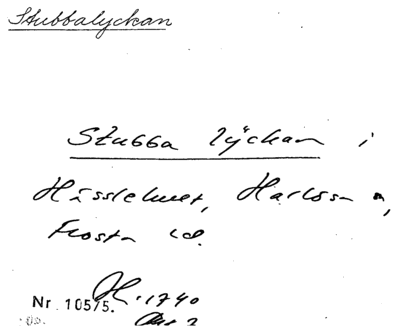 Stubbalyckan
Stubba lyckan i
Hässlehult, Harlösa s,
Frosta hd.
H. 1740
Nr. 10575.
Akt 2